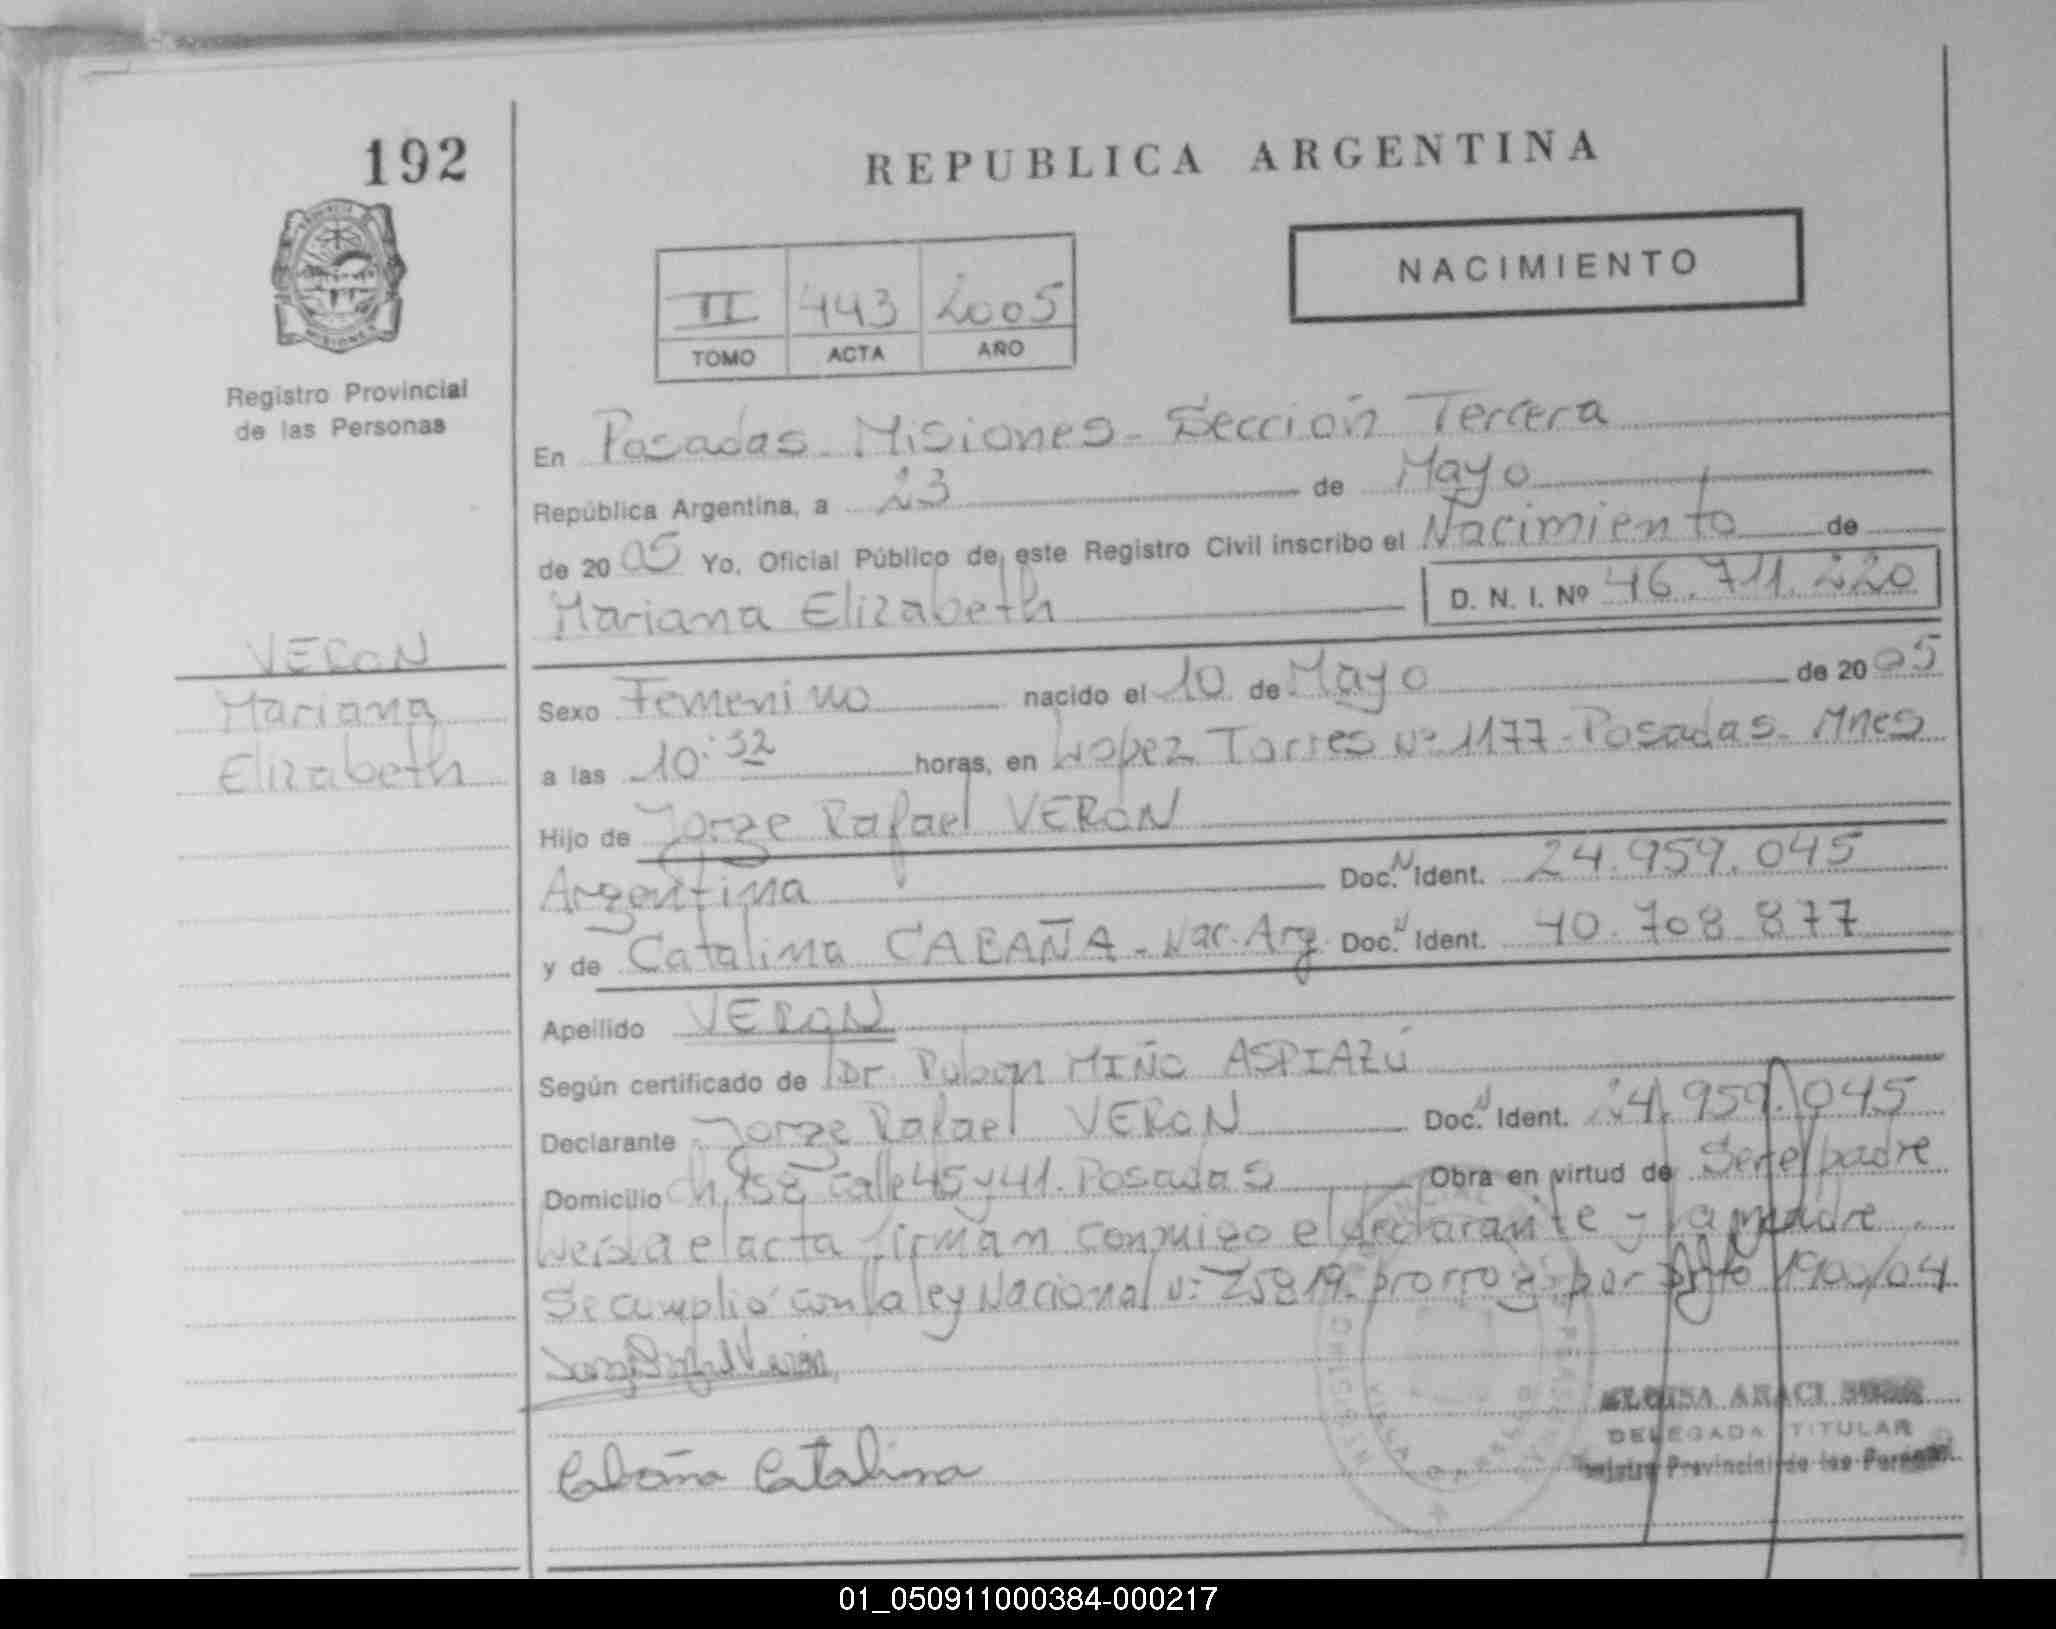 192
REPUBLICA ARGENTINA
NACIMIENTO
II 443 2005
TOMO ACTA AÑO
Registro Provincial
de las Personas
En Posadas Misiones - Sección Tercera
República Argentina, a 23 de Mayo
de 2005 Yo, Oficial Público de este Registro Civil inscribo el Nacimiento de
Mariana Elizabeth D. N. I. Nº 46.711.220
VERON
Mariana
Elizabeth
Sexo Femenino nacido el 10 de Mayo de 2005
a las 10:32 horas, en Lopez Torres Nº 1177 - Posadas - Mnes
Hijo de Jorge Rafael VERON
Argentina Doc. N Ident. 24.959.045
y de Catalina CABAÑA - Nac. Arg. Doc. N Ident. 40.708.877
Apellido VERON
Según certificado de Dr. Ruben MIÑO ASPIAZÚ
Declarante Jorge Rafael VERON Doc. N Ident. 24.959.045
Domicilio Ch. 158 Calle 45 y 41. Posadas Obra en virtud de Ser el padre
Leída el acta firman conmigo el declarante y la madre
Se cumplió con la ley Nacional Nº 25819 - prorrog. por Dto 1900/04
Cabaña Catalina
DELEGADA TITULAR
Provincial de las Personas
01_050911000384-000217